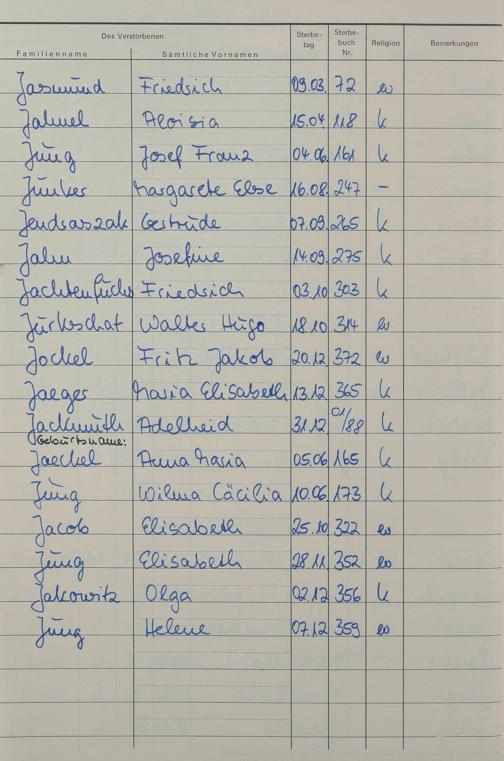 Des Verstorbenen Sterbe- Sterbe-
tag buch Religion Bemerkungen
Familienname Sämtliche Vornamen Nr.
Jasmund Friedrich 09.03. 72 ev
Jahnel Aloisia 15.04 118 k
Jung Josef Franz 04.06. 161 k
Junker Margarete Else 16.08. 247 –
Jendraszak Gertrude 07.09. 265 k
Jahn Josefine 14.09. 275 k
Jachtenfuchs Friedrich 03.10 303 k
Jurkschat Walter Hugo 18.10 314 ev
Jockel Fritz Jakob 20.12 372 ev
Jaeger Maria Elisabeth 13.12 365 k
Jackmuth Adelheid 31.12 01/88 k
Geburtsname:
Jaeckel Anna Maria 05.06 165 k
Jung Wilma Cäcilia 10.06 173 k
Jacob Elisabeth 25.10 322 ev
Jung Elisabeth 28.11. 352 ev
Jakowitz Olga 02.12 356 k
Jung Helene 07.12 359 ev